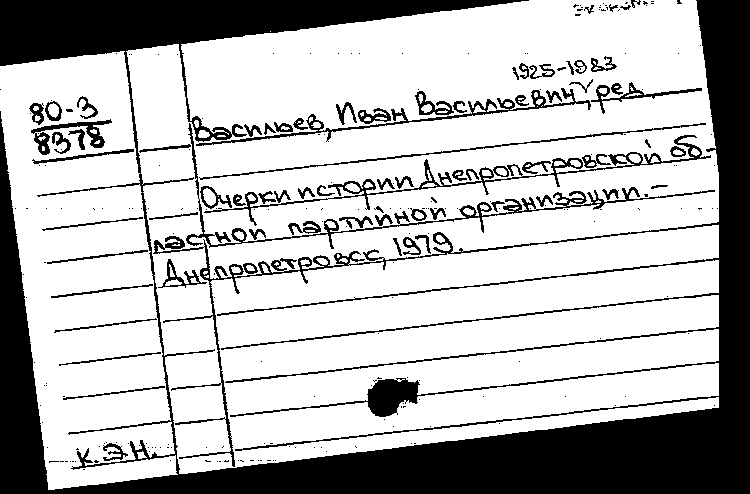 1925-1983
80-3
8378
Васильев, Иван Васильевич, ред.
Очерки истории Днепропетровской об-
ластной партийной организации.-
Днепропетровск, 1979.
К.Э.Н.